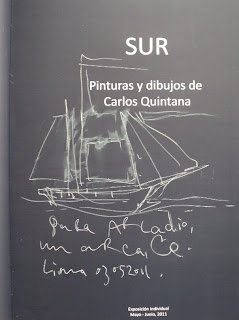 SUR
Pinturas y dibujos de
Carlos Quintana
para Arcadio,
un
Lima 03052011.
Exposición Individual
Mayo - Junio, 2011